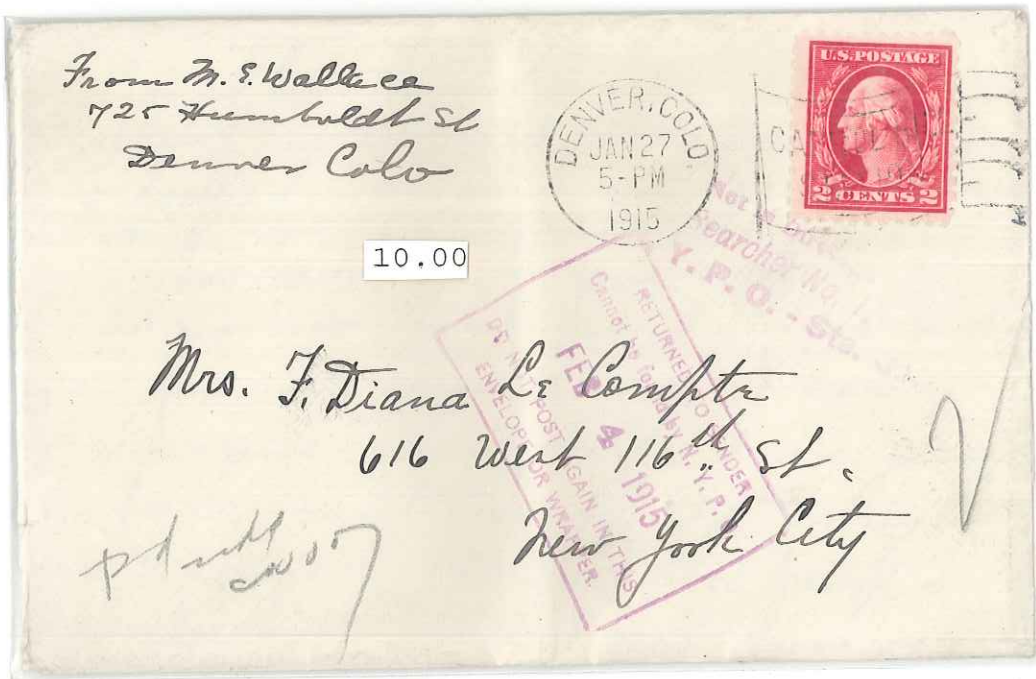 From M. E. Wallace
725 Humboldt St
Denver Colo
DENVER, COLO
JAN 27
5-PM
1915
U.S. POSTAGE
2 CENTS 2
10.00
Searcher No. 1.
Y. P. O. - Sta.
RETURNED TO SENDER
Cannot be found by N. Y. P. O.
FEB 4 1915
DO NOT POST AGAIN IN THIS
ENVELOPE OR WRAPPER.
Mrs. F. Diana Le Compte
616 West 116th St.
New York City